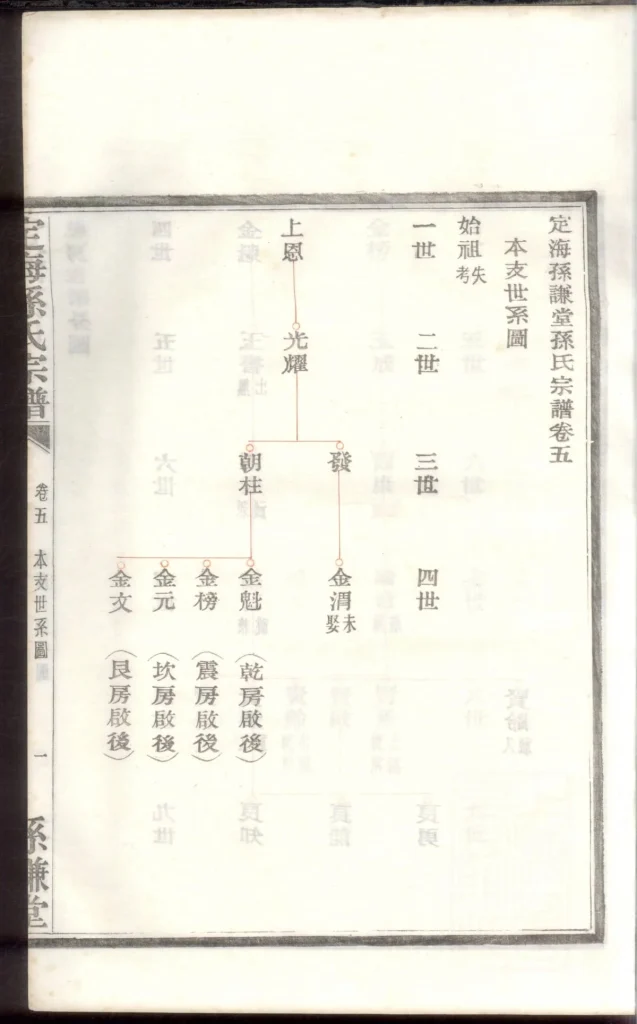 定海孫謙堂孫氏宗譜卷五
本支世系圖
始祖失考
一世
二世
三世
四世
上恩
光耀
發
金渭未娶
朝柱
金魁（乾房啟後）
金榜（震房啟後）
金元（坎房啟後）
金文（艮房啟後）
定海孫氏宗譜
卷五
本支世系圖
一
孫謙堂